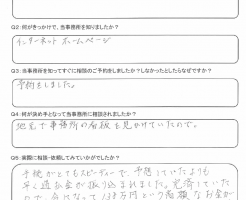 Q2:何がきっかけで、当事務所を知りましたか?
インターネット ホームページ
Q3:当事務所を知ってすぐに相談のご予約をしましたか?しなかったとしたらなぜですか?
予約をしました。
Q4:何が決め手となって当事務所に相談されましたか?
地元で事務所の看板を見かけていたので。
Q5:実際に相談・依頼してみていかがでしたか?
手続がとてもスピーディーで、予想していたよりも
早く過払金が振り込まれました。完済していた
ので、分になって138万円という高額なお金が